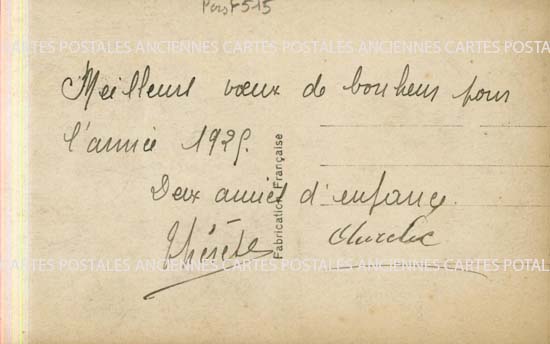 CARTES POSTALES ANCIENNES CARTES POSTALES ANCIENNES CARTES POSTALES
Meilleurs vœux de bonheur pour
l'année 1925.
Deux amies d'enfance.
Thérèse
Fabrication Française
CARTES POSTALES ANCIENNES CARTES POSTALES ANCIENNES CARTES POSTAL